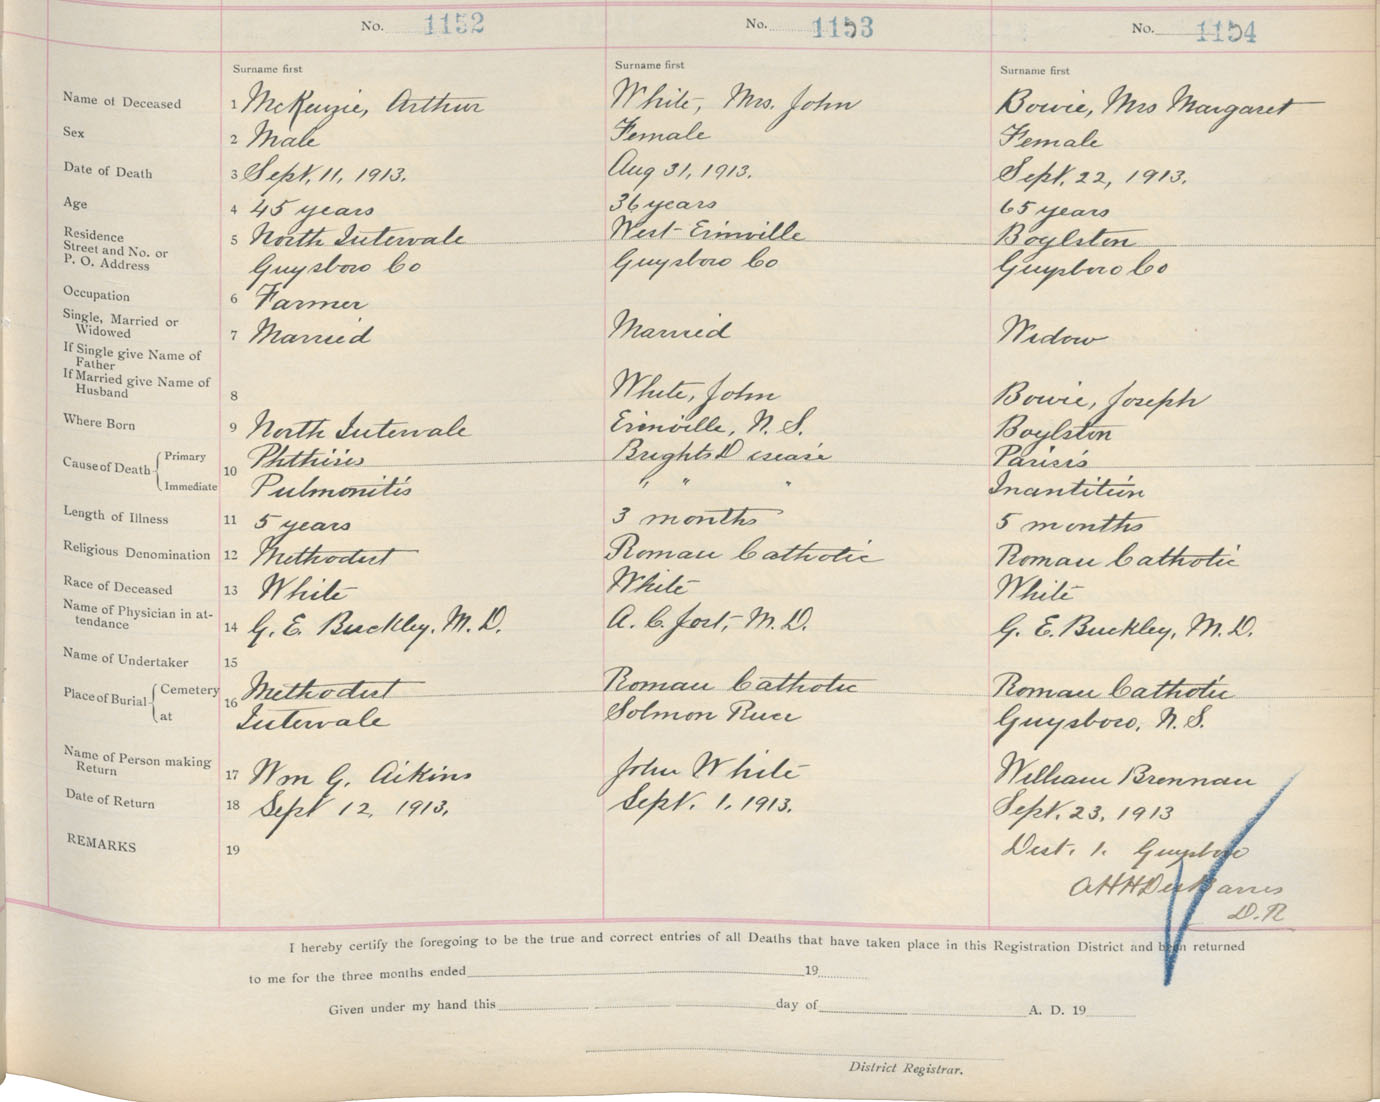 No. 1152 No. 1153 No. 1154
Surname first Surname first Surname first
Name of Deceased 1 McKenzie, Arthur White, Mrs. John Bowie, Mrs Margaret
Sex 2 Male Female Female
Date of Death 3 Sept. 11, 1913. Aug 31, 1913. Sept. 22, 1913.
Age 4 45 years 36 years 65 years
Residence 5 North Intervale West Erinville Boylston
Street and No. or
P. O. Address Guysboro Co Guysboro Co Guysboro Co
Occupation 6 Farmer
Single, Married or
Widowed 7 Married Married Widow
If Single give Name of
Father
If Married give Name of
Husband 8 White, John Bowie, Joseph
Where Born 9 North Intervale Erinville, N. S. Boylston
Cause of Death Primary 10 Phthisis Brights Disease Parisis
Immediate Pulmonitis " " " Inantition
Length of Illness 11 5 years 3 months 5 months
Religious Denomination 12 Methodist Roman Catholic Roman Catholic
Race of Deceased 13 White White White
Name of Physician in at-
tendance 14 G. E. Buckley, M. D. A. C. Jost, M. D. G. E. Buckley, M. D.
Name of Undertaker 15
Place of Burial Cemetery 16 Methodist Roman Catholic Roman Catholic
at Intervale Solmon River Guysboro, N. S.
Name of Person making
Return 17 Wm G. Aikins John White William Brennan
Date of Return 18 Sept 12, 1913. Sept. 1, 1913. Sept. 23, 1913
REMARKS 19 Dist. 1. Guysboro
AHH DesBarres
D. R
I hereby certify the foregoing to be the true and correct entries of all Deaths that have taken place in this Registration District and been returned
to me for the three months ended 19
Given under my hand this day of A. D. 19
District Registrar.